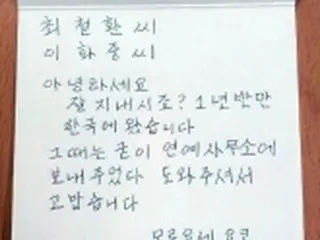 최 철 환 씨
이 화 중 씨
아 녕하세요
잘 지내시죠? 1년반만
한국에 왔습니다
그때는 굳이 연예사무소에
보내주었다 도와주셔서
고맙습니다